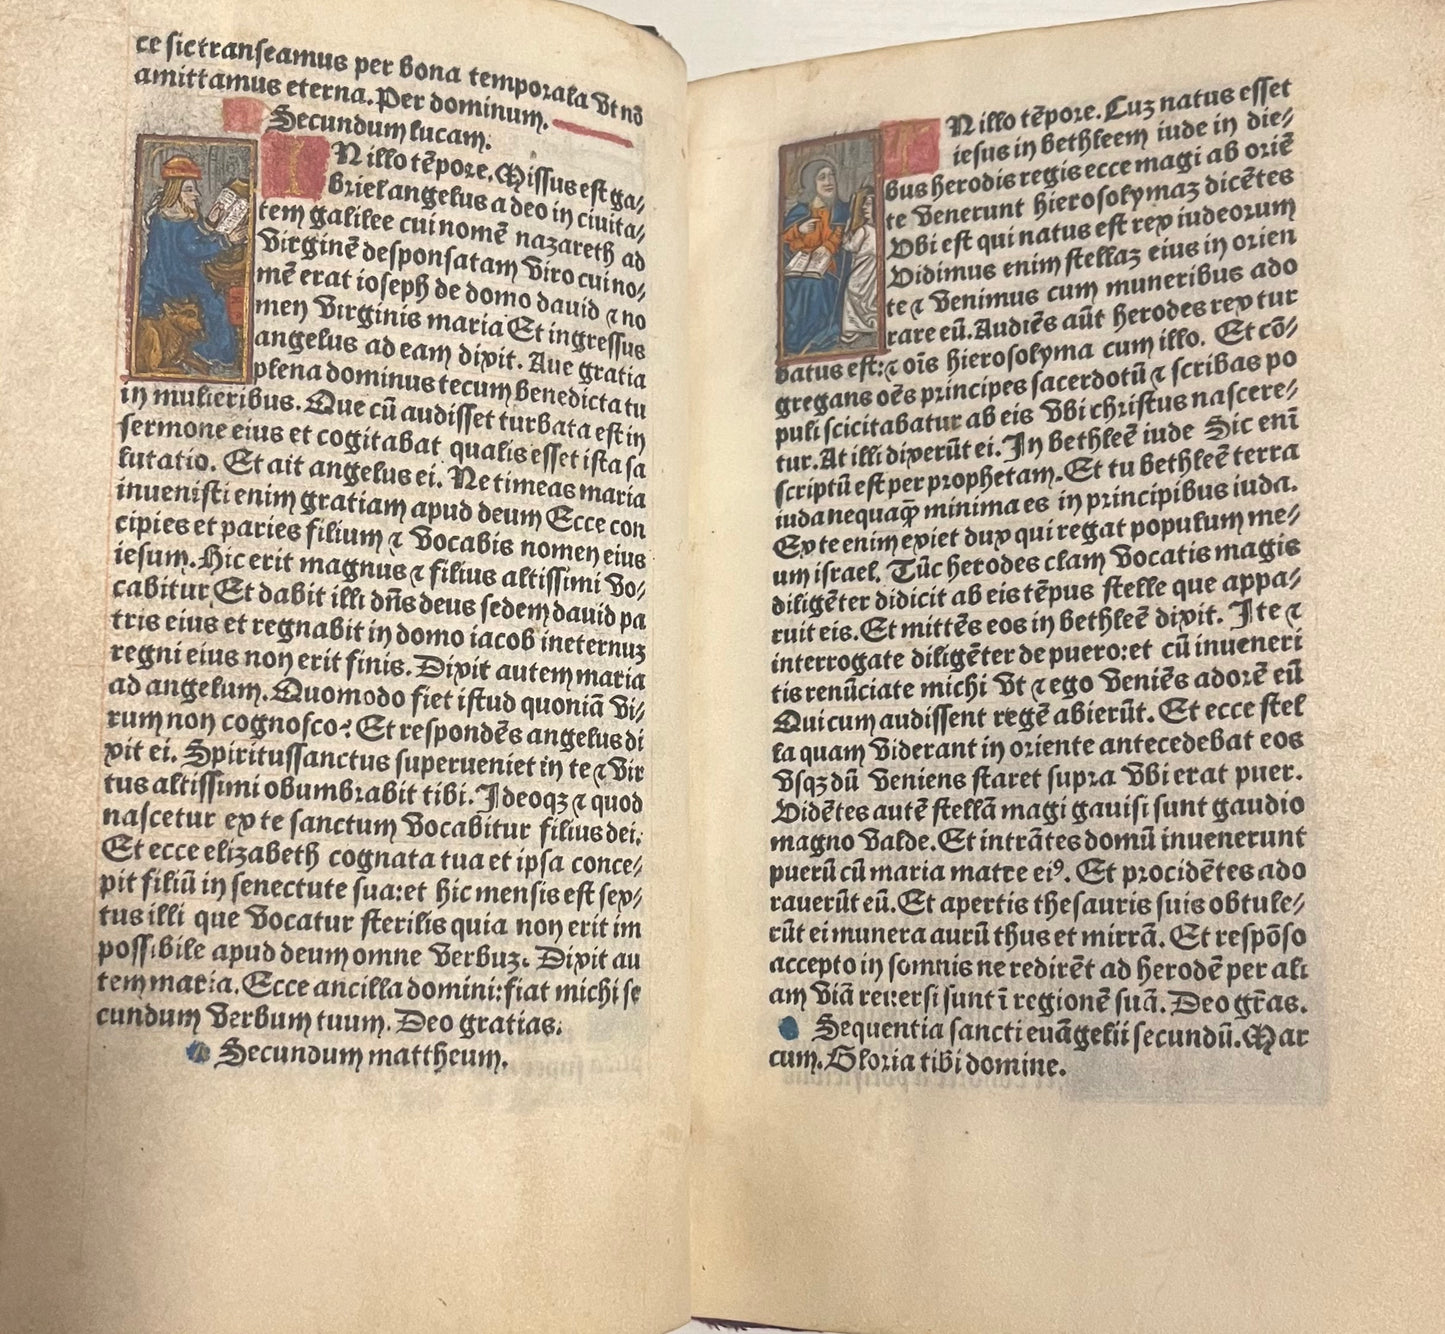 ce sic transeamus per bona temporalia vt nō
amittamus eterna. Per dominum.
Secundum lucam.
IN illo tēpore. Missus est ga⸗
briel angelus a deo in ciuita⸗
tem galilee cui nomē nazareth ad
virginē desponsatam viro cui no⸗
mē erat ioseph de domo dauid ⁊ no
men virginis maria Et ingressus
angelus ad eam dixit. Aue gratia
plena dominus tecum benedicta tu
in mulieribus. Que cū audisset turbata est in
sermone eius et cogitabat qualis esset ista sa
lutatio. Et ait angelus ei. Ne timeas maria
inuenisti enim gratiam apud deum Ecce con
cipies et paries filium ⁊ vocabis nomen eius
iesum. Hic erit magnus ⁊ filius altissimi vo⸗
cabitur Et dabit illi dn̄s deus sedem dauid pa
tris eius et regnabit in domo iacob in eternuꝫ
regni eius non erit finis. Dixit autem maria
ad angelum. Quomodo fiet istud quoniā vi⸗
rum non cognosco? Et respondēs angelus di
xit ei. Spiritussanctus superueniet in te ⁊ vir
tus altissimi obumbrabit tibi. Ideoqꝫ ⁊ quod
nascetur ex te sanctum vocabitur filius dei.
Et ecce elizabeth cognata tua et ipsa conce⸗
pit filiū in senectute sua: et hic mensis est sex⸗
tus illi que vocatur sterilis quia non erit im
possibile apud deum omne verbuꝫ. Dixit au
tem maria. Ecce ancilla domini: fiat michi se
cundum verbum tuum. Deo gratias.
Secundum mattheum.
IN illo tēpore. Cuꝫ natus esset
iesus in bethleem iude in die⸗
bus herodis regis ecce magi ab oriē
te venerunt hierosolymaꝫ dicētes
Vbi est qui natus est rex iudeorum
Vidimus enim stellaꝫ eius in orien
te ⁊ venimus cum muneribus ado
rare eū. Audiēs aūt herodes rex tur
batus est: ⁊ oīs hierosolyma cum illo. Et cō⸗
gregans oēs principes sacerdotū ⁊ scribas po
puli scicitabatur ab eis vbi christus nascere⸗
tur. At illi dixerūt ei. In bethleē iude Sic enī
scriptū est per prophetam. Et tu bethleē terra
iuda nequaq̄ minima es in principibus iuda.
Ex te enim exiet dux qui regat populum me⸗
um israel. Tūc herodes clam vocatis magis
diligēter didicit ab eis tēpus stelle que appa⸗
ruit eis. Et mittēs eos in bethleē dixit. Ite ⁊
interrogate diligēter de puero: et cū inueneri
tis renūciate michi vt ⁊ ego veniēs adorē eū
Qui cum audissent regē abierūt. Et ecce stel
la quam viderant in oriente antecedebat eos
vsqꝫ dū veniens staret supra vbi erat puer.
Vidētes autē stellā magi gauisi sunt gaudio
magno valde. Et intrātes domū inuenerunt
puerū cū maria matre eiꝰ. Et procidētes ado
rauerūt eū. Et apertis thesauris suis obtule⸗
rūt ei munera aurū thus et mirrā. Et respōso
accepto in somnis ne redirēt ad herodē per ali
am viā reuersi sunt ī regionē suā. Deo gr̄as.
Sequentia sancti euāgelii secundū. Mar
cum. Gloria tibi domine.